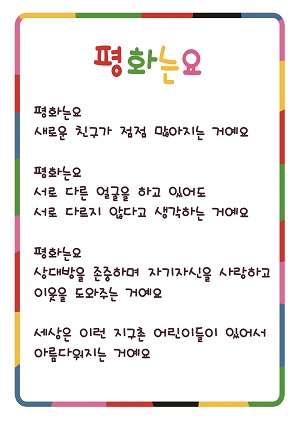 평화는요
평화는요
새로운 친구가 점점 많아지는 거예요
평화는요
서로 다른 얼굴을 하고 있어도
서로 다르지 않다고 생각하는 거예요
평화는요
상대방을 존중하며 자기자신을 사랑하고
이웃을 도와주는 거예요
세상은 이런 지구촌 어린이들이 있어서
아름다워지는 거예요